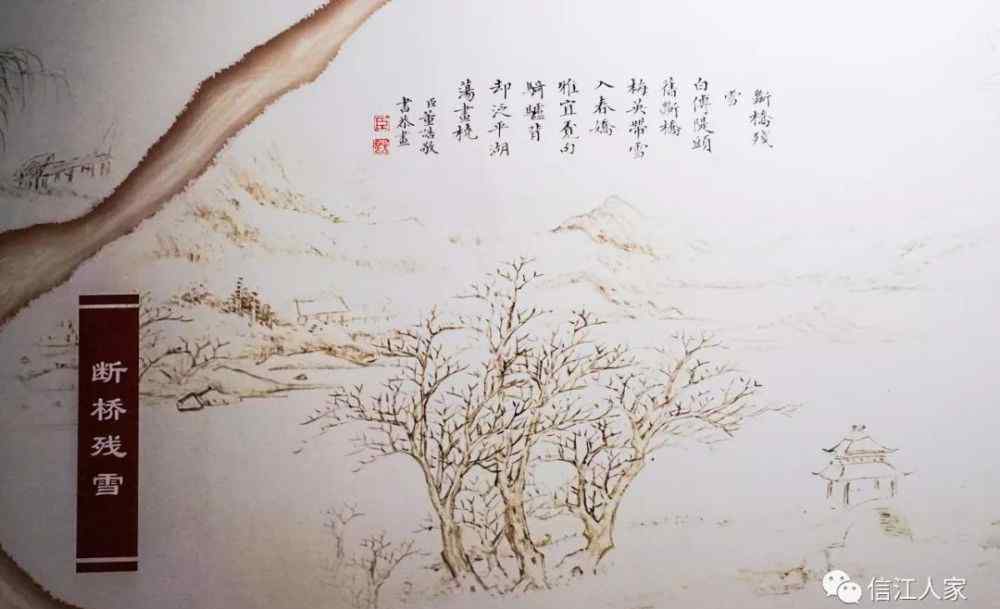 斷橋殘
雪
白傅隄頭
舊斷橋
梅英帶雪
入春嬌
雅宜覓句
騎驢背
却泛平湖
蕩畫橈
臣董誥敬
書恭畫
断桥残雪
信江人家